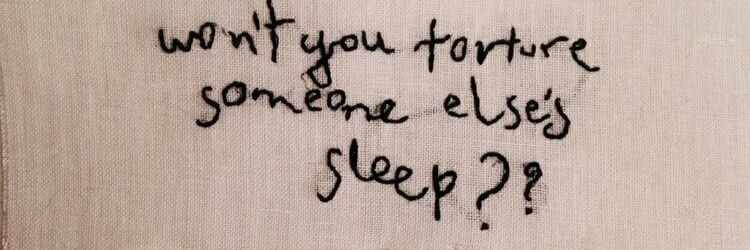 won't you torture
someone else's
sleep??